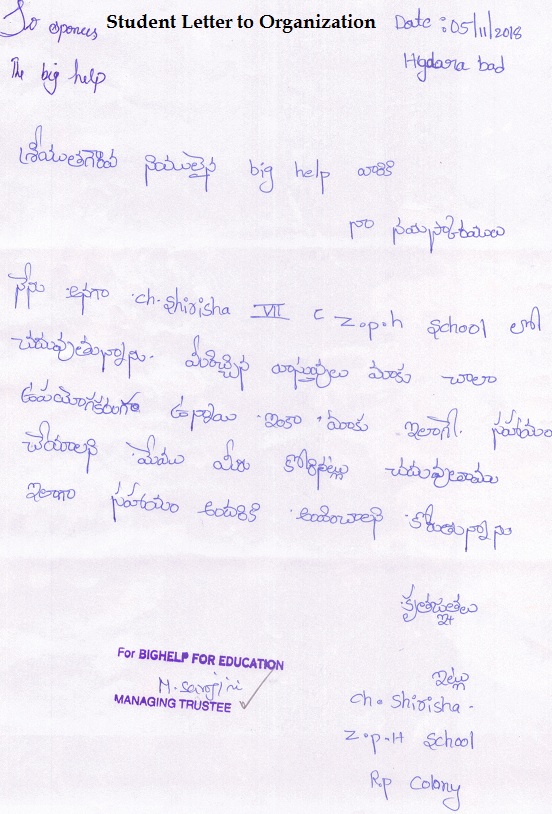 Student Letter to Organization
To sponces
Date : 05/11/2018
The big help
Hydara bad
శ్రీయుతగౌరవ నియులైన big help వారికి
నా నమస్కారములు
నేను అనగా ch. Shirisha VII C Z.p.h School లో
చదువుతున్నాను. మీరిచ్చిన వస్తువులు మాకు చాలా
ఉపయోగకరంగా ఉన్నాయి ఇంకా మాకు ఇలాగే సహాయం
చేయాలని మేము మీరు కోరినట్లు చదువుతాము
ఇలాగా సహాయం అందరికి అందించాలని కోరుతున్నాను
కృతజ్ఞతలు
ఇట్లు
For BIGHELP FOR EDUCATION
M. Sarojini
MANAGING TRUSTEE
ch. Shirisha.
Z.p.H School
R.p Colony